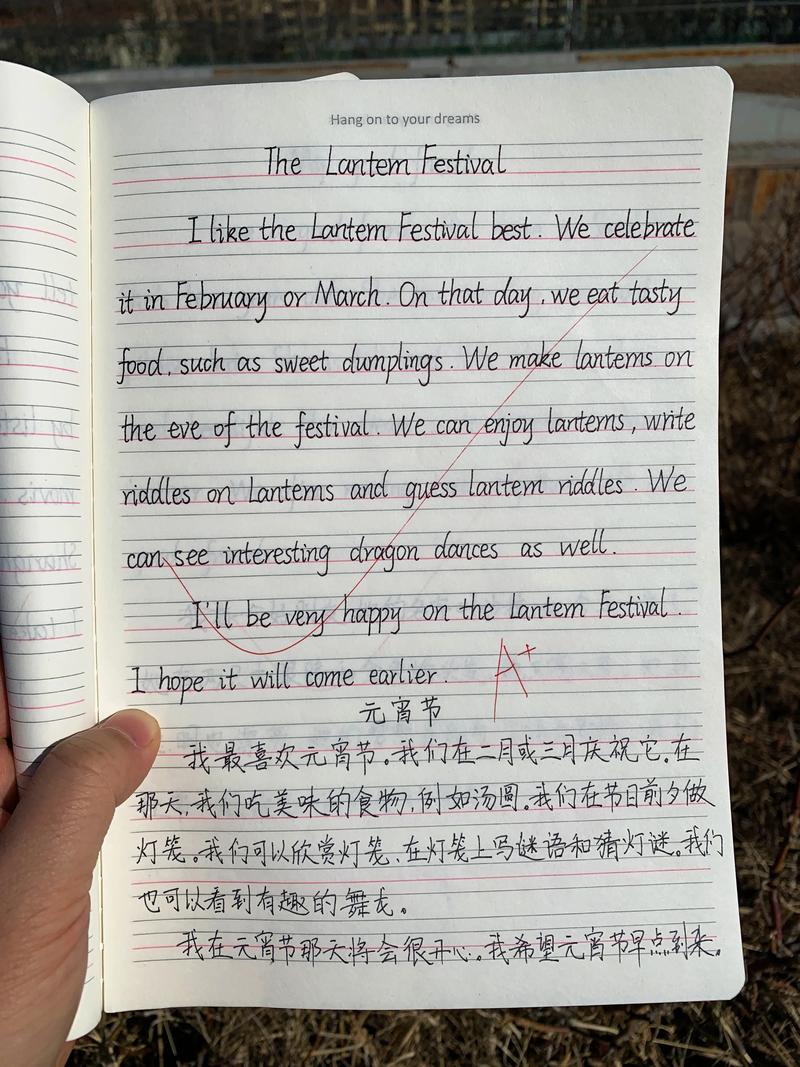 Hang on to your dreams
The Lantern Festival
I like the Lantern Festival best. We celebrate
it in February or March. On that day, we eat tasty
food, such as sweet dumplings. We make lanterns on
the eve of the festival. We can enjoy lanterns, write
riddles on lanterns and guess lantern riddles. We
can see interesting dragon dances as well.
I'll be very happy on the Lantern Festival.
I hope it will come earlier.
A+
元宵节
我最喜欢元宵节。我们在二月或三月庆祝它。在
那天,我们吃美味的食物,例如汤圆。我们在节日前夕做
灯笼。我们可以欣赏灯笼、在灯笼上写谜语和猜灯谜。我们
也可以看到有趣的舞龙。
我在元宵节那天将会很开心。我希望元宵节早点到来。